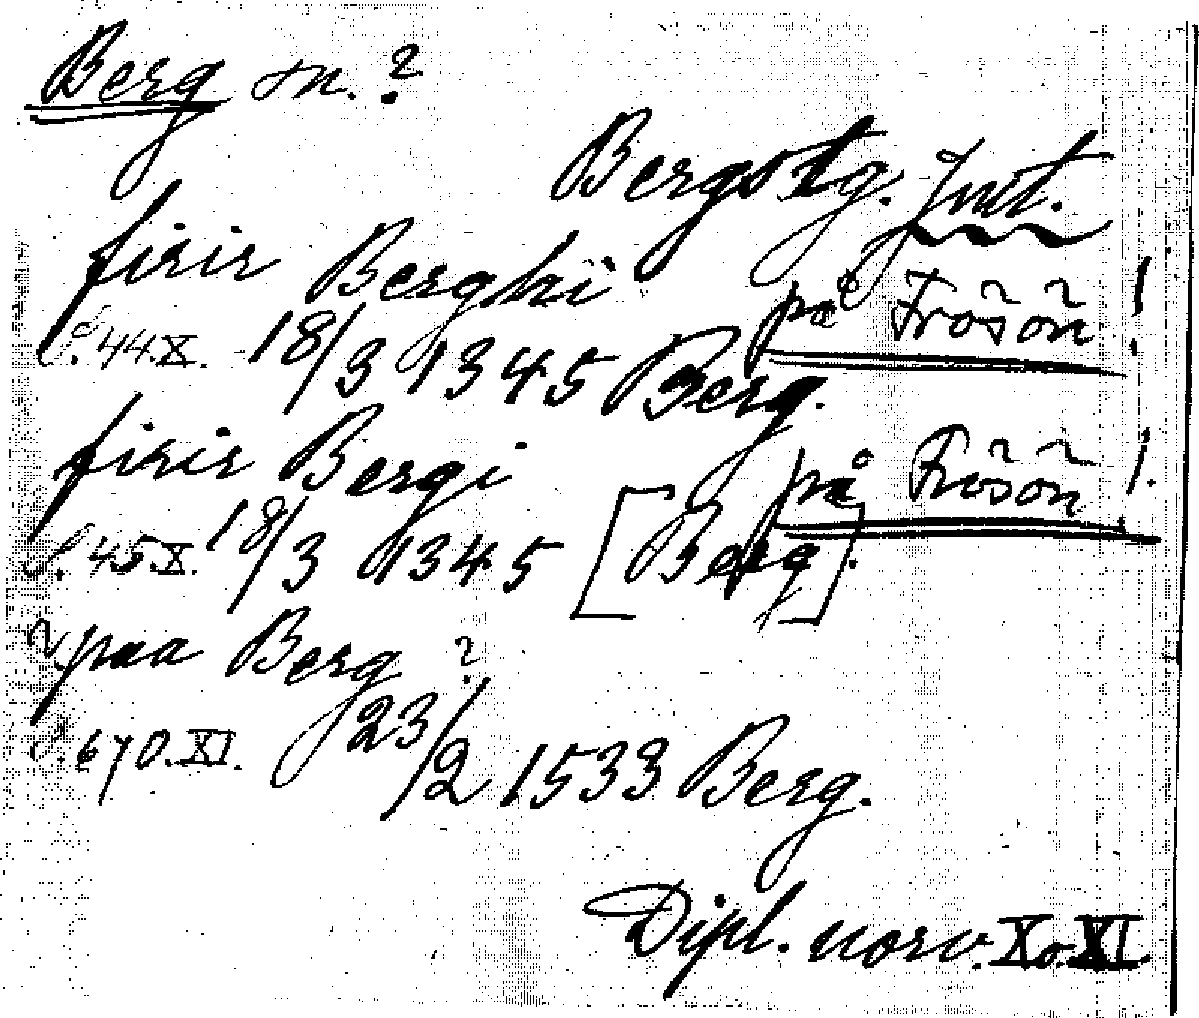 Berg sn.?
Bergs tg. Jmt.
firir Berghi på Frösön!
s. 44 X. 18/3 1345 Berg.
firir Bergi på Frösön!
s. 45 X. 18/3 1345 [Berg].
? paa Berg ?
s. 670. XI. 23/2 1533 Berg.
Dipl. norv. X o. XI